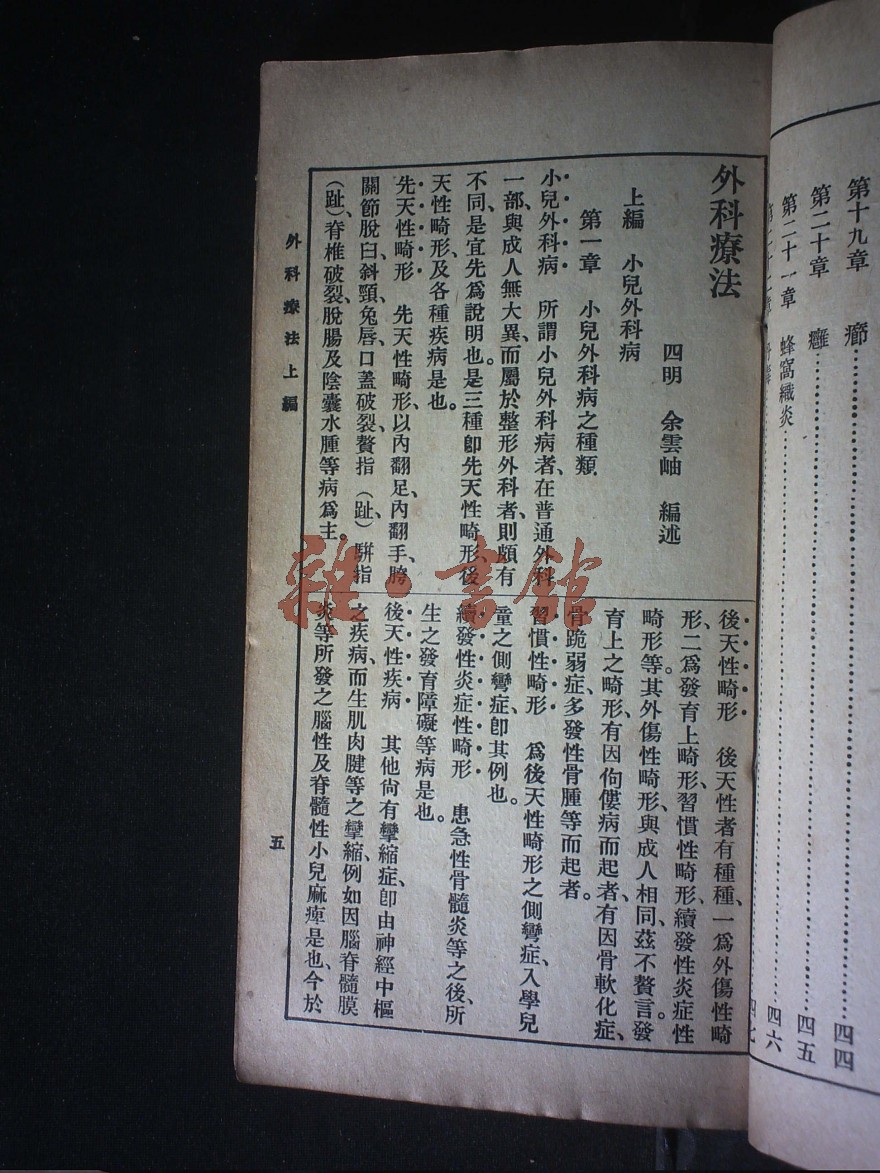 第十九章 癤 四四
第二十章 癰 四五
第二十一章 蜂窩織炎 四六
外科療法
四明 余雲岫 編述
上編 小兒外科病
第一章 小兒外科病之種類
小兒外科病 所謂小兒外科病者、在普通外科
一部、與成人無大異、而屬於整形外科者、則頗有
不同、是宜先爲說明也。是三種卽先天性畸形、後
天性畸形、及各種疾病是也。
先天性畸形 先天性畸形、以內翻足、內翻手、胯
關節脫臼、斜頸、兔唇、口蓋破裂、贅指(趾)、騈指
(趾)、脊椎破裂、脫腸及陰囊水腫等病爲主。
後天性畸形 後天性者有種種、一爲外傷性畸
形、二爲發育上畸形、習慣性畸形、續發性炎症性
畸形等。其外傷性畸形、與成人相同、茲不贅言。發
育上之畸形、有因佝僂病而起者、有因骨軟化症、
骨跪弱症、多發性骨腫等而起者。
習慣性畸形 爲後天性畸形之側彎症、入學兒
童之側彎症、卽其例也。
續發性炎症性畸形 患急性骨髓炎等之後、所
生之發育障礙等病是也。
後天性疾病 其他尙有攣縮症、卽由神經中樞
之疾病、而生肌肉腱等之攣縮、例如因腦脊髓膜
炎等所發之腦性及脊髓性小兒麻痺是也、今於
外科療法上編
五
雜·書館